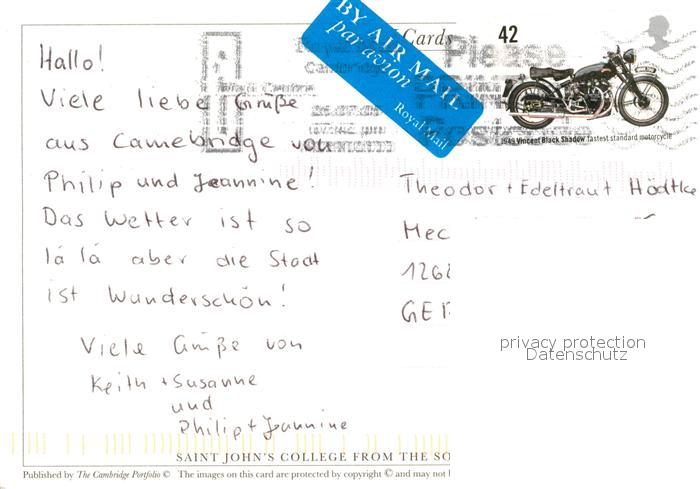 Hallo!
Viele liebe Grüße
aus Camebridge von
Philip und Jeannine!
Das Wetter ist so
lá lá aber die Stadt
ist Wunderschön!
Viele Grüße von
Keith + Susanne
und
Philip + Jeannine
Cards
BY AIR MAIL
par avion
Royal Mail
42
1949 Vincent Black Shadow fastest standard motorcycle
Theodor + Edeltraut Hödtke
Mec
126
GER
privacy protection
Datenschutz
SAINT JOHN'S COLLEGE FROM THE SO
Published by The Cambridge Portfolio © The images on this card are protected by copyright © and may not